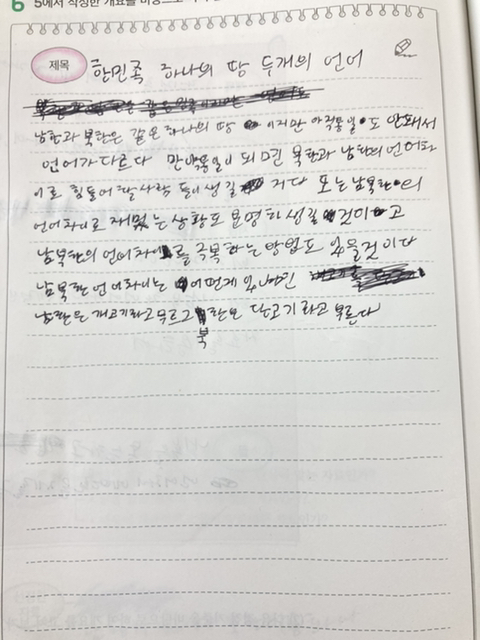 6 5에서 작성한 개요를 바탕으로
제목 한민족 하나의 땅 두개의 언어
남한과 북한은 같은 하나의 땅 이지만 아직통일도 안돼서
언어가 다르다 만약통일이 되면 북한과 남한의 언어차
이로 힘들어 할사람 들이 생길 거다 또는 남북한의
언어차이로 재밌는 상황도 분명히 생길 것이고
남북한의 언어차이를 극복하는 방법도 있을것이다
남북한 언어차이는 어떤게 있냐면
남한은 개고기라고 부르고 북한은 단고기라고 부른다